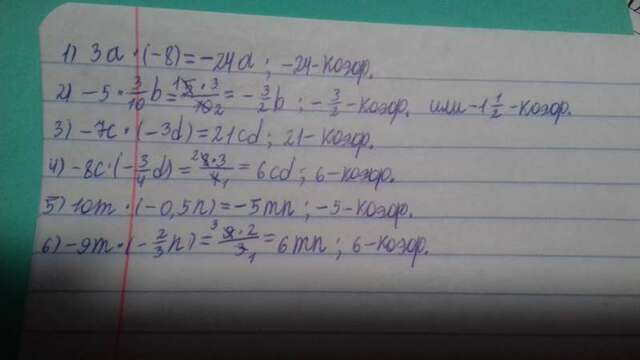 1) 3a · (-8) = -24a ; -24 - коэф.
2) -5 · 3/10 b = 15̸ · 3/10̸2 = -3/2 b ; -3/2 - коэф. или -1 1/2 - коэф.
3) -7c · (-3d) = 21cd ; 21 - коэф.
4) -8c · (-3/4 d) = 28̸ · 3/4̸1 = 6cd ; 6 - коэф.
5) 10m · (-0,5n) = -5mn ; -5 - коэф.
6) -9m · (-2/3 n) = 39̸ · 2/3̸1 = 6mn ; 6 - коэф.